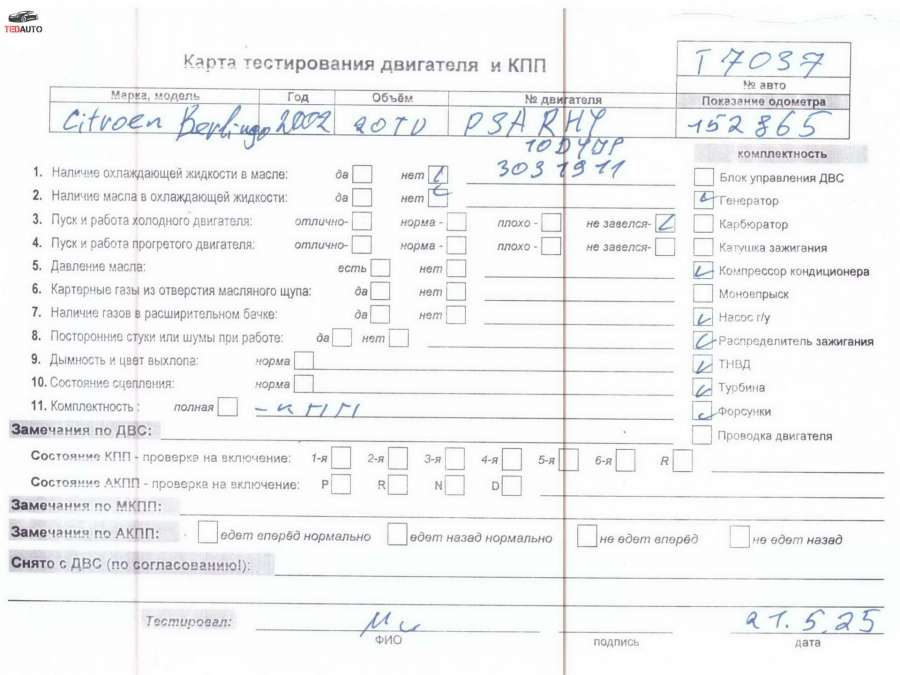 TEDAUTO
Карта тестирования двигателя и КПП
T 7037
№ авто
Марка, модель Год Объём № двигателя Показание одометра
Citroen Berlingo 2002 20TD PSA RHY 152865
10DYUP
3031911
комплектность
1. Наличие охлаждающей жидкости в масле: да нет
Блок управления ДВС
2. Наличие масла в охлаждающей жидкости: да нет
Генератор
3. Пуск и работа холодного двигателя: отлично- норма - плохо - не завелся-
Карбюратор
4. Пуск и работа прогретого двигателя: отлично- норма - плохо - не завелся-
Катушка зажигания
5. Давление масла: есть нет
Компрессор кондиционера
6. Картерные газы из отверстия масляного щупа: да нет
Моновпрыск
7. Наличие газов в расширительном бачке: да нет
Насос г/у
8. Посторонние стуки или шумы при работе: да нет
Распределитель зажигания
9. Дымность и цвет выхлопа: норма
ТНВД
10. Состояние сцепления: норма
Турбина
11. Комплектность : полная - КПП
Форсунки
Замечания по ДВС:
Проводка двигателя
Состояние КПП - проверка на включение: 1-я 2-я 3-я 4-я 5-я 6-я R
Состояние АКПП - проверка на включение: P R N D
Замечания по МКПП:
Замечания по АКПП: едет вперёд нормально едет назад нормально не едет вперёд не едет назад
Снято с ДВС (по согласованию!):
Тестировал: 21.5.25
ФИО подпись дата